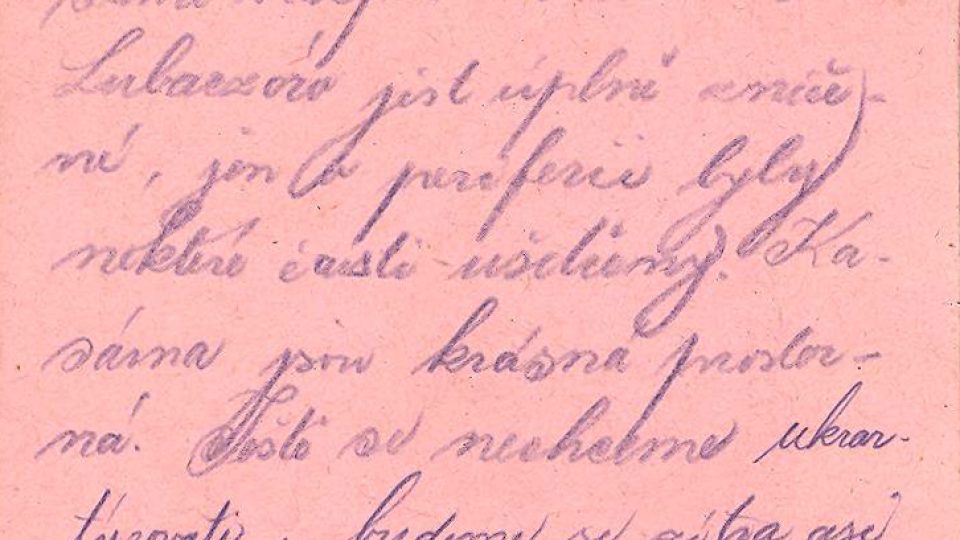 Lubaczów jest úplně zniče-
né, jen v periferii byly
některé části ušetřeny. Ka-
sárna jsou krásná prostor-
ná. Ještě se nechceme ukvar-
týrovati, budeme se zítra asi